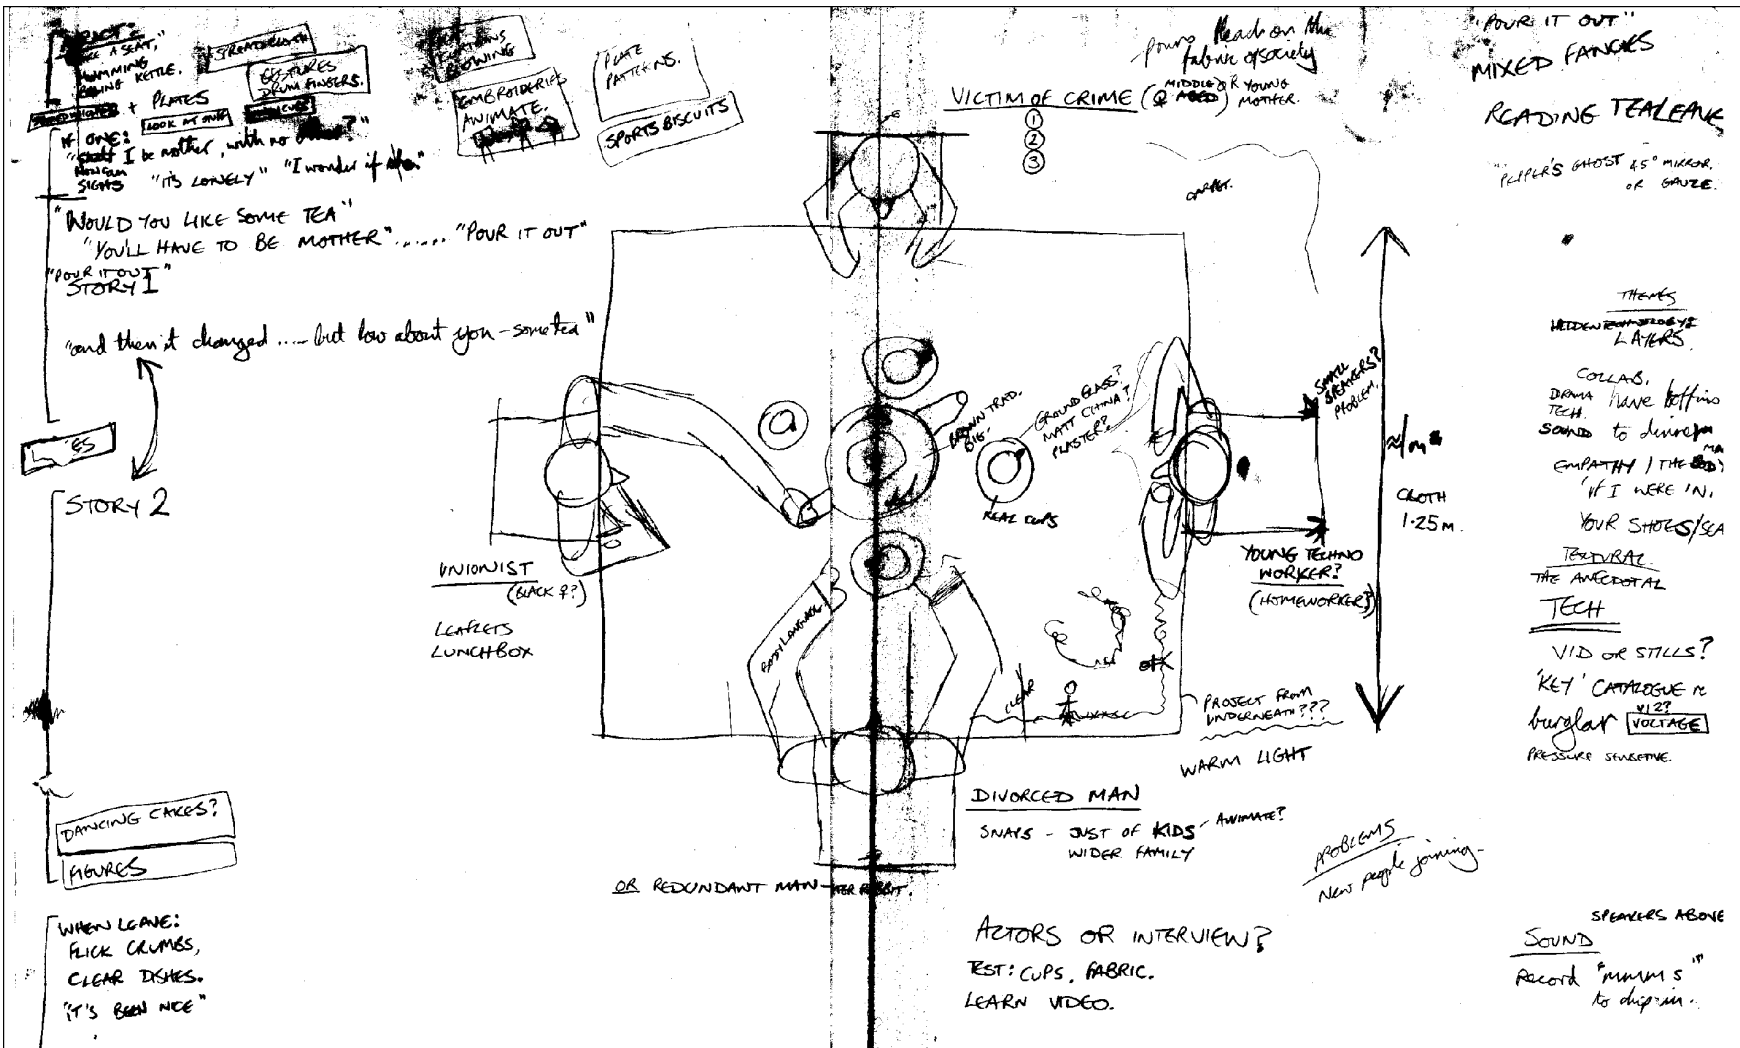 HUMMING
BOILING KETTLE.
+ PLATES
GESTURES
DRUM FINGERS.
IF ONE:
"Shall I be mother, with no other?"
SIGHS "IT'S LONELY" "I wonder if
BLOWING
EMBROIDERIES
ANIMATE.
PLATE
PATTERNS.
SPORTS BISCUITS
"WOULD YOU LIKE SOME TEA"
"YOU'LL HAVE TO BE MOTHER"...... "POUR IT OUT"
"POUR IT OUT"
STORY 1
"and then it changed ..... but how about you - some tea"
STORY 2
DANCING CAKES?
FIGURES
WHEN LEAVE:
FLICK CRUMBS,
CLEAR DISHES.
"IT'S BEEN NICE"
fabric of society
VICTIM OF CRIME (♀ MIDDLE AGED OR YOUNG MOTHER.
1
2
3
CARPET.
BROWN TRAD.
BIG.
GROUND GLASS?
MATT CHINA?
PLASTER?
REAL CUPS
SMALL
SPEAKERS?
PROBLEM.
CLOTH
1.25 M.
UNIONIST
(BLACK ♀?)
LEAFLETS
LUNCHBOX
BODY LANGUAGE
YOUNG TECHNO
WORKER?
(HOMEWORKER?)
PROJECT FROM
UNDERNEATH???
WARM LIGHT
DIVORCED MAN
SNAPS - JUST OF KIDS - ANIMATE?
WIDER FAMILY
OR REDUNDANT MAN
PROBLEMS
New people joining-
ACTORS OR INTERVIEW?
TEST: CUPS, FABRIC.
LEARN VIDEO.
"POUR IT OUT"
MIXED FANCIES
READING TEALEAVE
"PEPPER'S GHOST 45° MIRROR.
OR GAUZE.
THEMES
HIDDEN TECHNOLOGY?
LAYERS.
COLLAB.
DRAMA have boffins
TECH.
SOUND to dinner
EMPATHY / THE
'IF I WERE IN
YOUR SHOES/SEA
TEXTURAL
THE ANECDOTAL
TECH
VID OR STILLS?
'KEY' CATALOGUE
burglar V12? VOLTAGE
PRESSURE SENSITIVE.
SPEAKERS ABOVE
SOUND
Record "mmms"
to chip in.